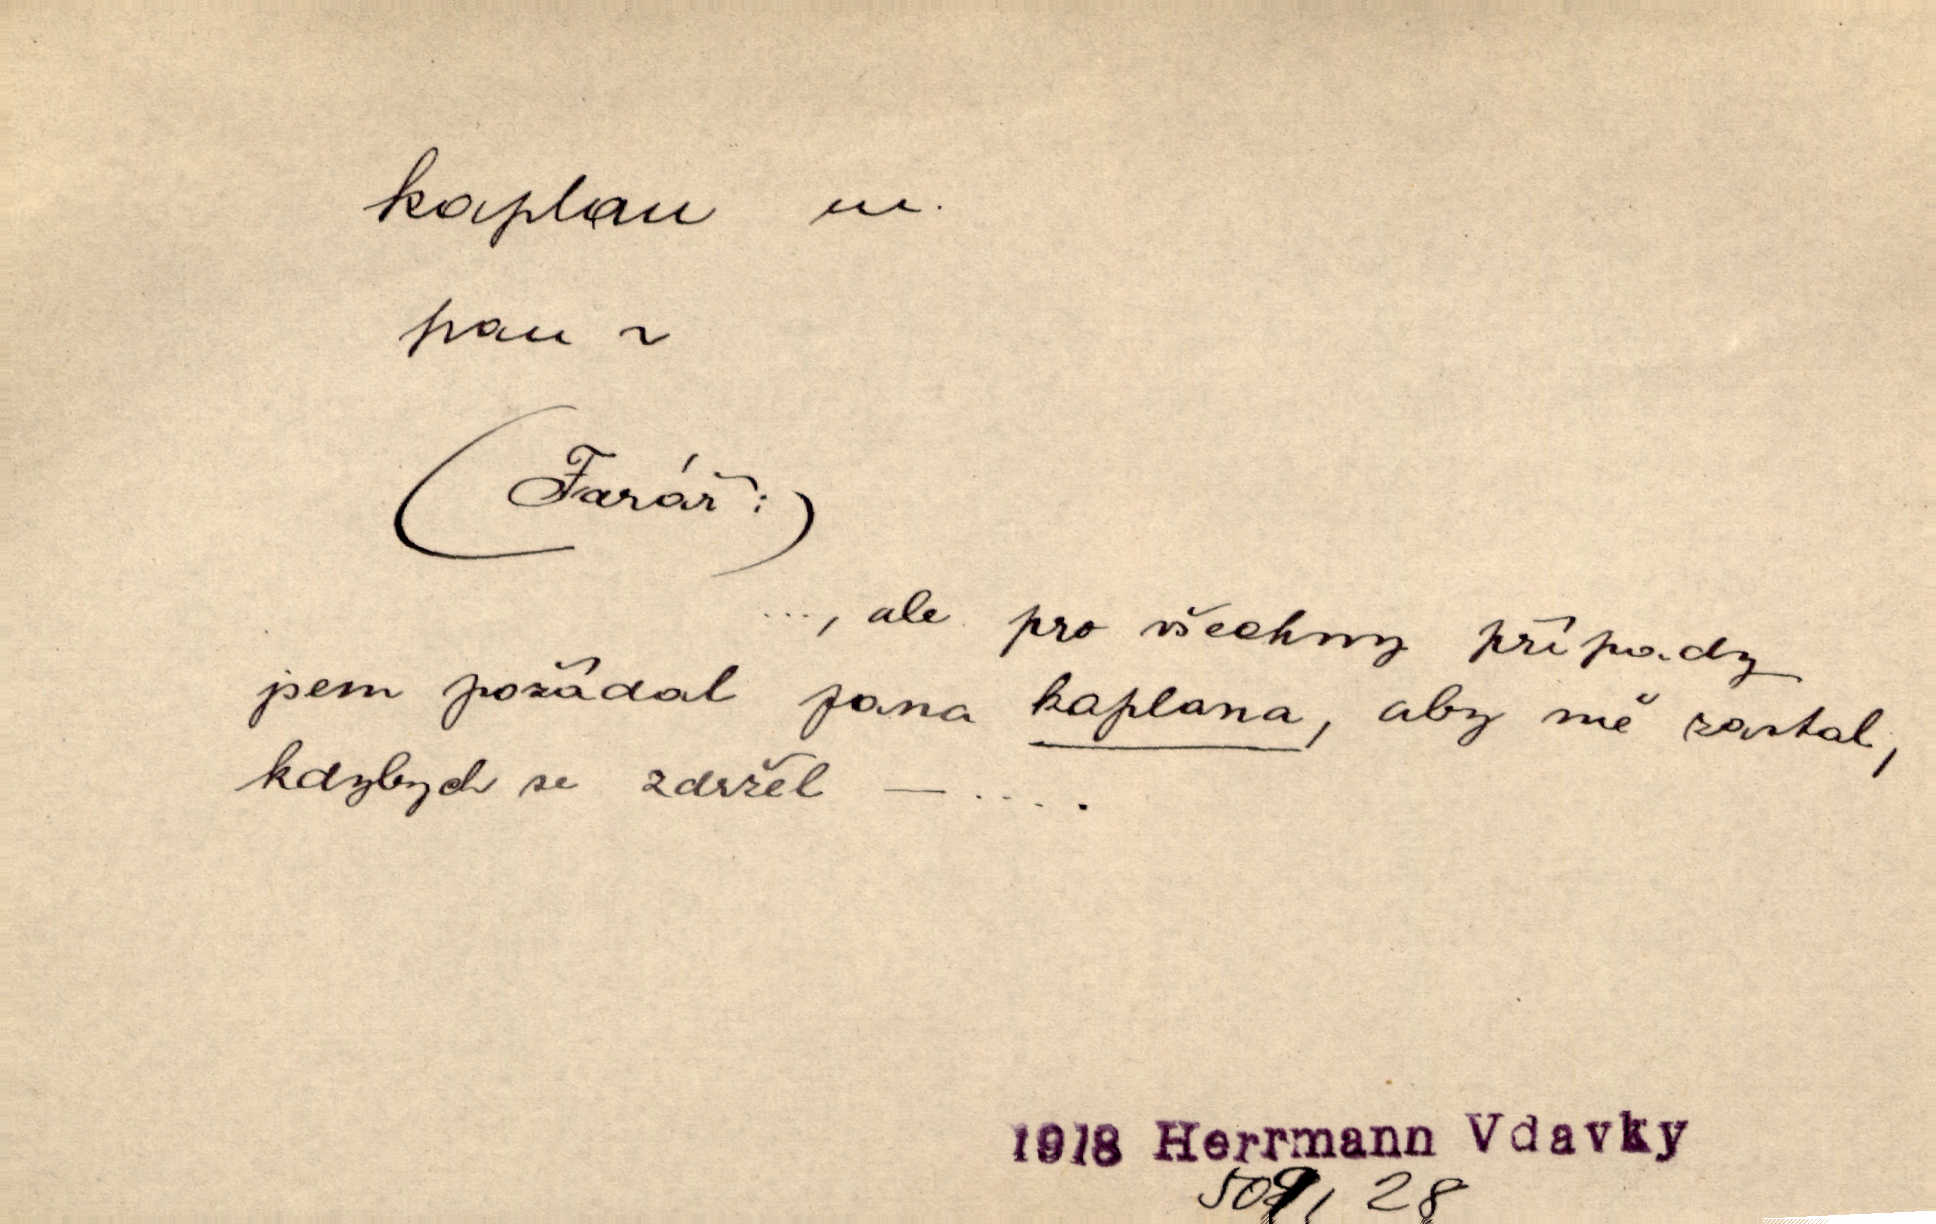 kaplan m.
pan ~
(Farář:)
..., ale pro všechny případy
jsem požádal pana kaplana, aby mě zastal,
kdybych se zdržel — .....
1918 Herrmann Vdavky
509, 28